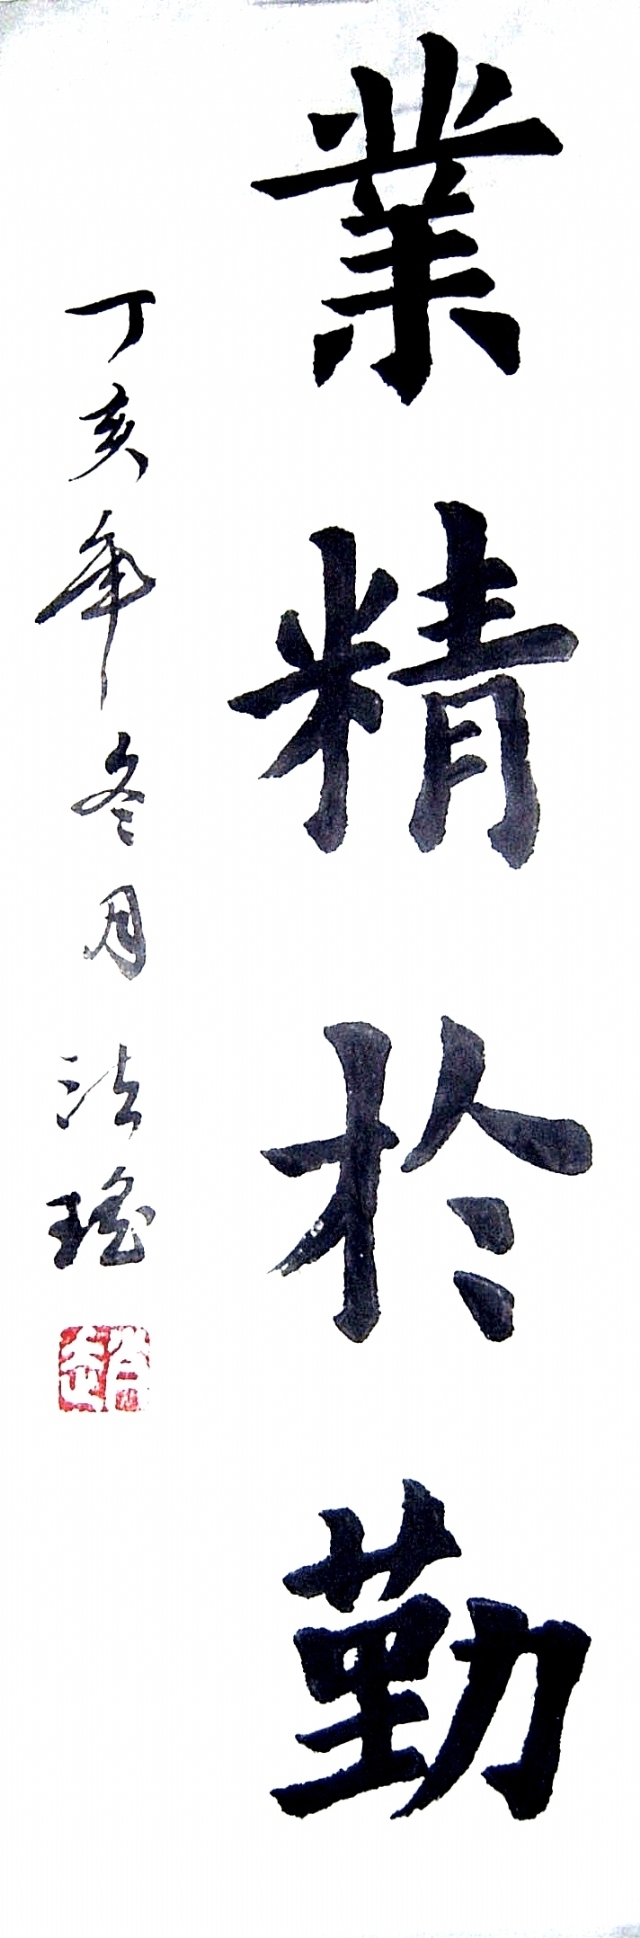 業精於勤
丁亥年冬月法瑤